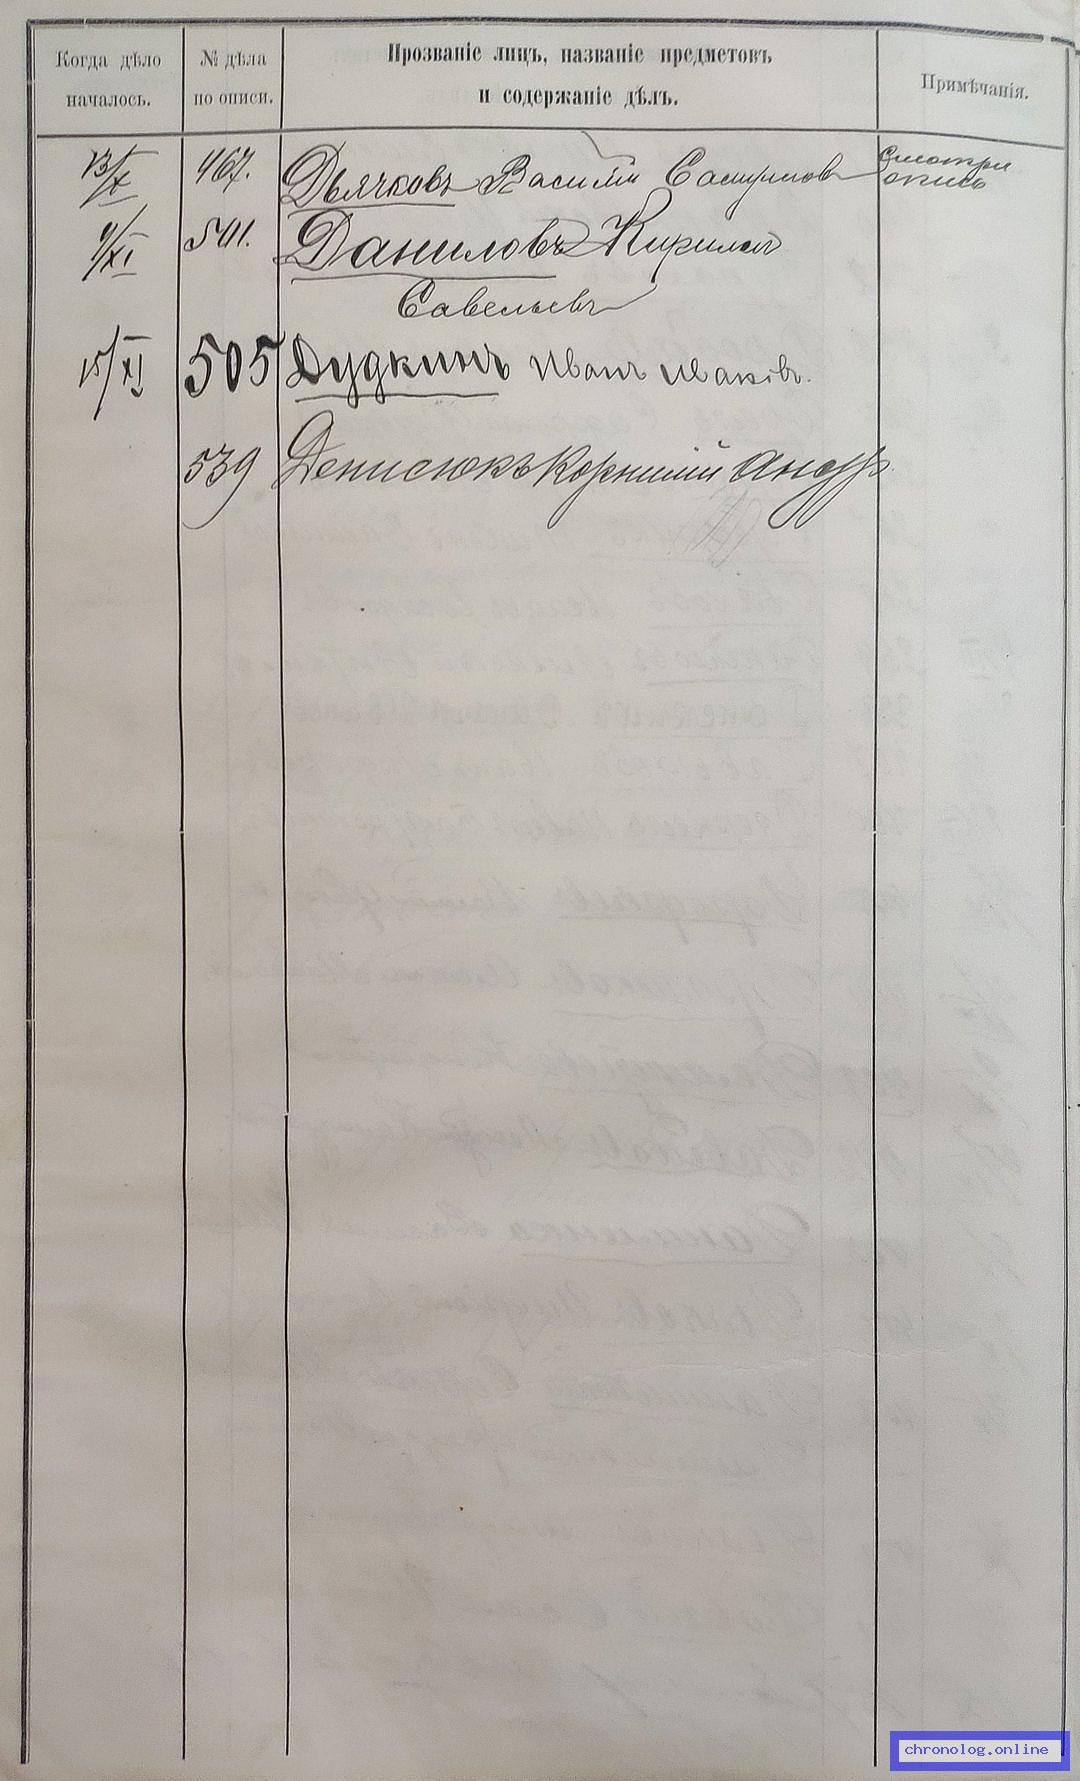 Когда дѣло началось.
№ дѣла по описи.
Прозваніе лицъ, названіе предметовъ
и содержаніе дѣлъ.
Примѣчанія.
13/X 467. Дьячковъ Василій смотри опись
9/XI 501. Даниловъ Кирилъ
Савельевъ
15/XI 505 Дудкинъ Иванъ
539 Денисюкъ Корнилій Андр.
chronolog.online